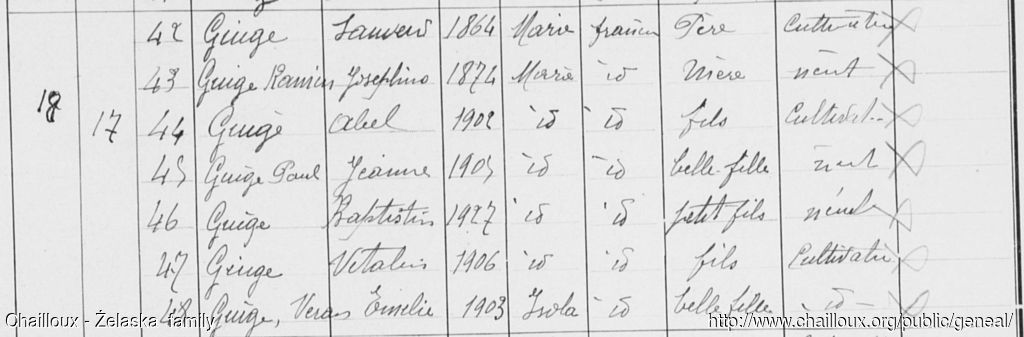 42 Guige Sauveur 1864 Marie français Père Cultivateur
43 Guige Ramin Joséphine 1874 Marie id Mère néant
18 17 44 Guige Abel 1902 id id fils Cultivat.
45 Guige Paul Jeanne 1905 id id belle-fille néant
46 Guige Baptistin 1927 id id petit fils néant
47 Guige Vitalin 1906 id id fils Cultivat
48 Guige, Veran Emélie 1903 Isola id belle fille id
Chailloux - Żelaska family
http://www.chailloux.org/public/geneal/